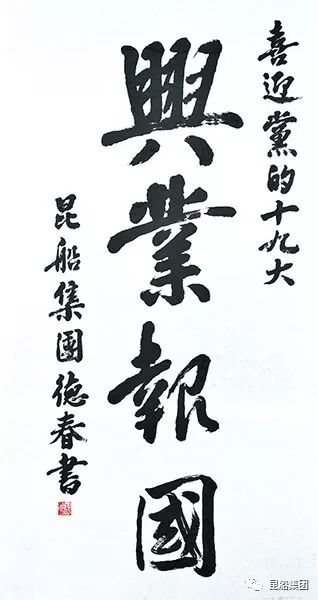 喜迎黨的十九大
興業報國
昆船集團德春書
昆船集团